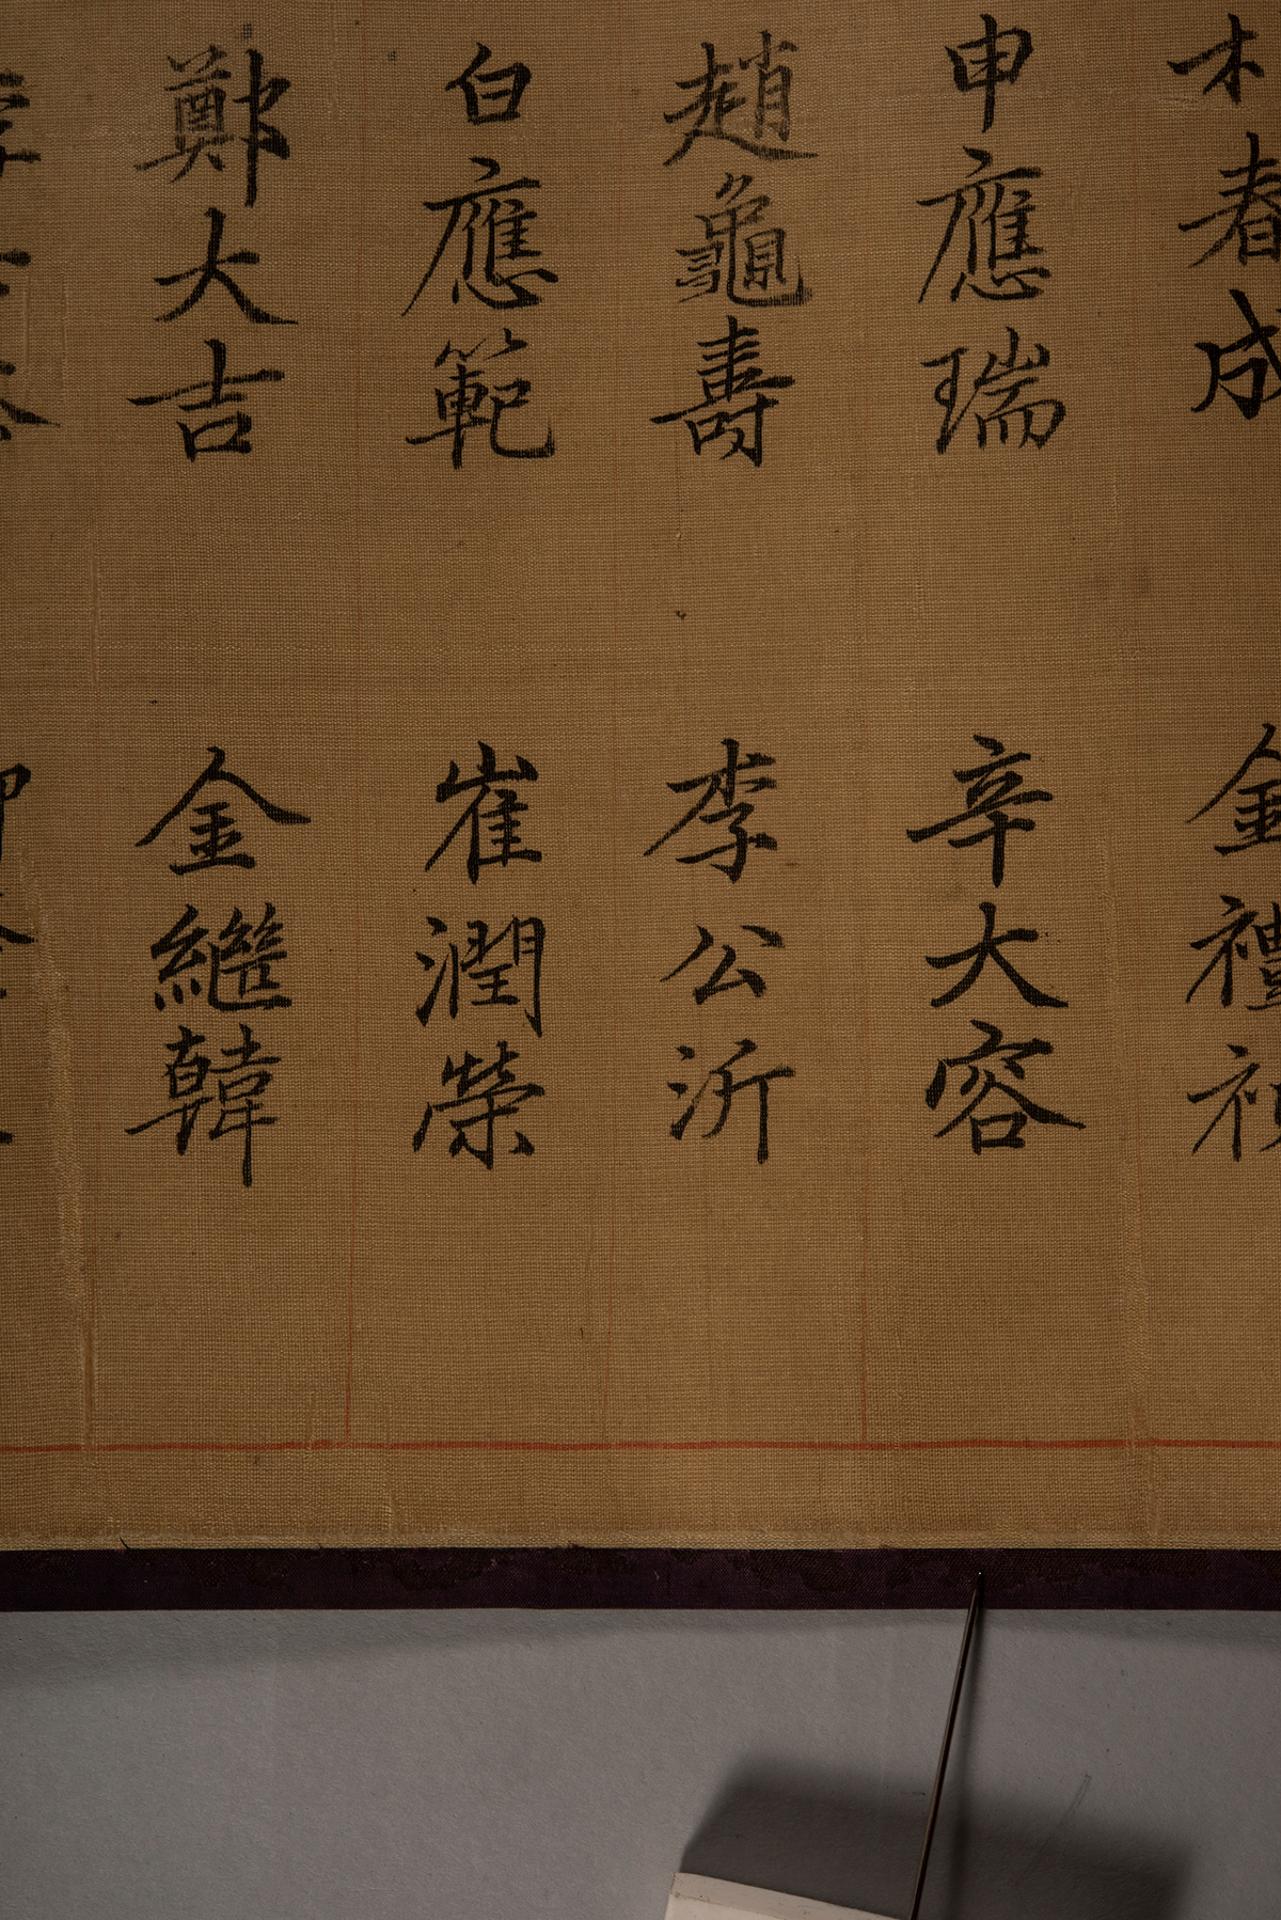 春成
申應瑞
趙龜壽
白應範
鄭大吉
金禮
辛大容
李公沂
崔潤榮
金繼韓